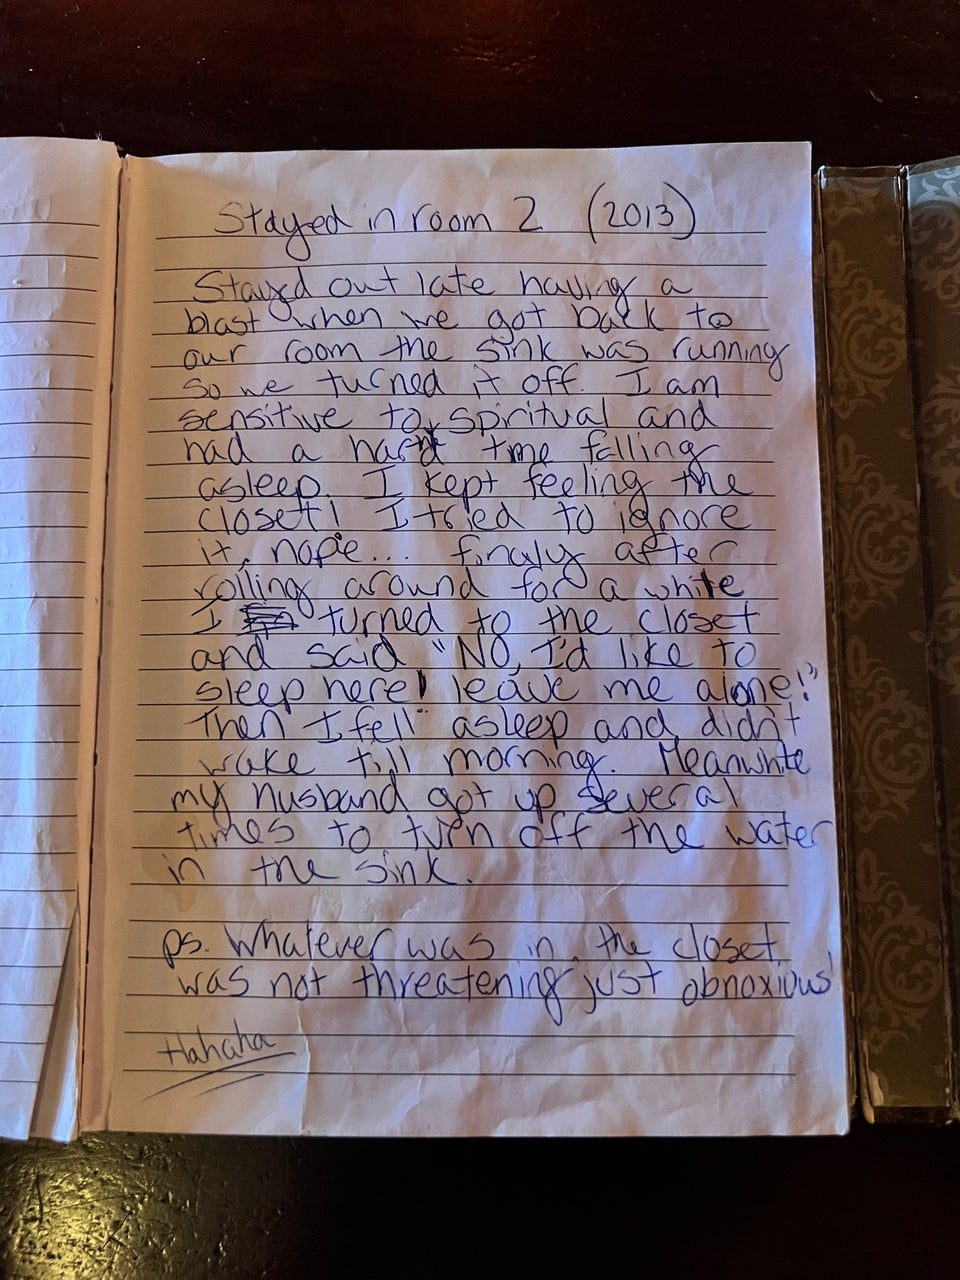 Stayed in room 2 (2013)
Stayed out late having a
blast when we got back to
our room the sink was running
so we turned it off. I am
sensitive to spiritual and
had a hard time falling
asleep. I kept feeling the
closet! I tried to ignore
it, nope... finaly after
rolling around for a while
I turned to the closet
and said "NO, I'd like to
sleep here! leave me alone!"
Then I fell asleep and didn't
wake till morning. Meanwhile
my husband got up several
times to turn off the water
in the sink.
ps. Whatever was in the closet
was not threatening just obnoxious!
Hahaha